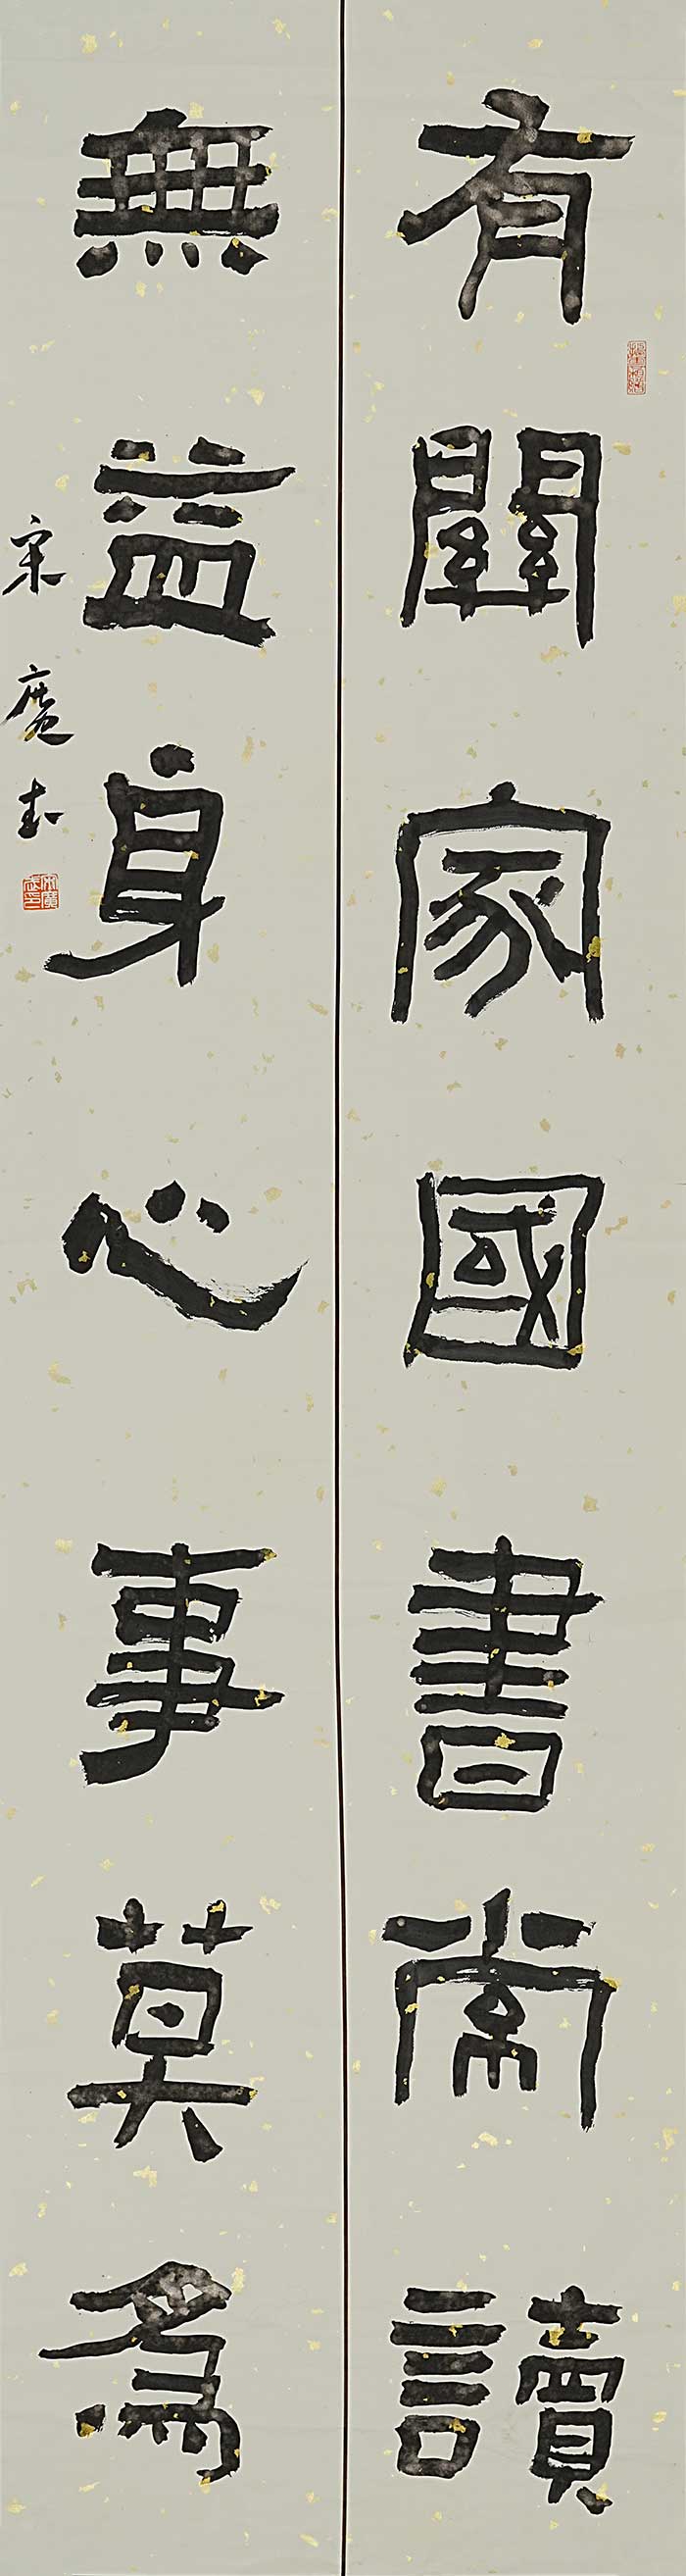 有關家國書常讀
無益身心事莫爲
宋